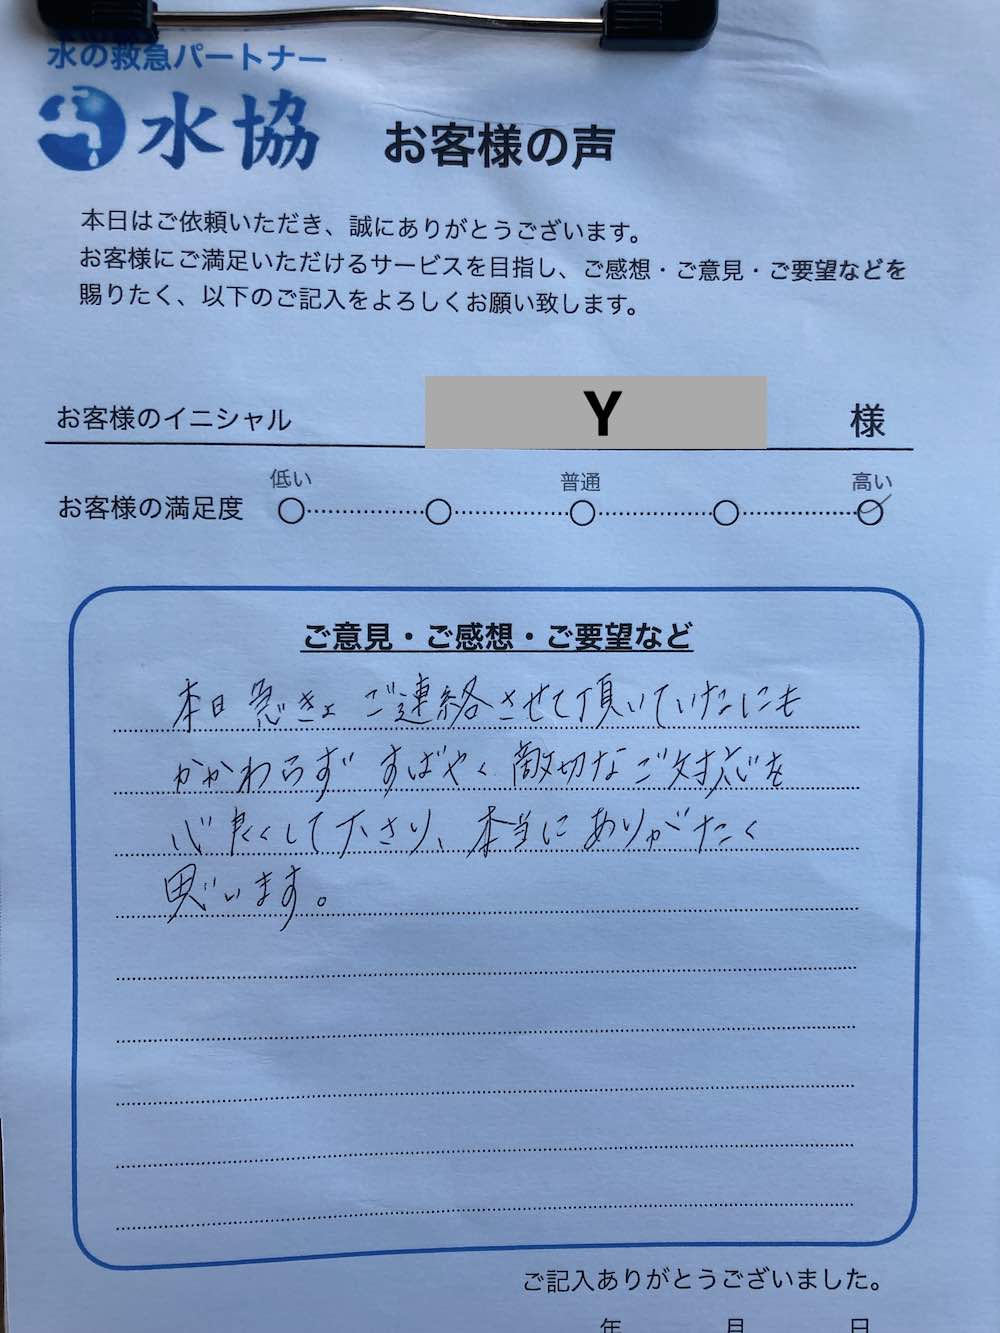 水の救急パートナー
水協
お客様の声
本日はご依頼いただき、誠にありがとうございます。
お客様にご満足いただけるサービスを目指し、ご感想・ご意見・ご要望などを
賜りたく、以下のご記入をよろしくお願い致します。
お客様のイニシャル Y 様
低い 普通 高い
お客様の満足度
ご意見・ご感想・ご要望など
本日急きょ ご連絡させて頂いていたにも
かかわらず すばやく 敵切な ご対応を
心良くして下さり、本当に ありがたく
思います。
ご記入ありがとうございました。
年 月 日